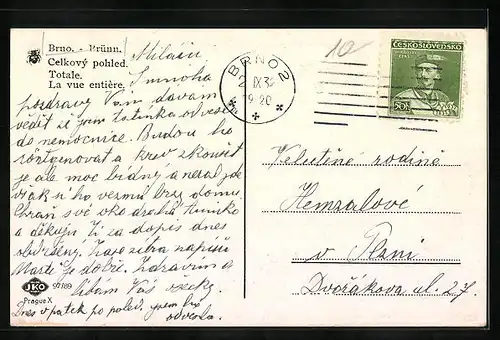 Brno. - Brünn.
Celkový pohled.
Totale.
La vue entière.
Milain
S mnoha
pozdravy Vám dávám
vědět že jsem tatínka odvezla
do nemocnice. Budou ho
röntgenovat a krev zkoušet
je ale moc bídný a nerad jde
však ho vezmu brzy domů.
Chraň své oko drahá
a děkuji Ti za dopis dnes
obdržený. zítra napíšu
je dobře. Zdravím a
líbám Vás všecky.
Dnes v pátek po poled. jsem ho
odvezla.
JKO
97189
Prague X
BRNO 2
2 IX 32
19 20
10
ČESKOSLOVENSKO
50h
Velectěná rodina
Hemzalové
v Plzni
Dvořákova ul. 27.